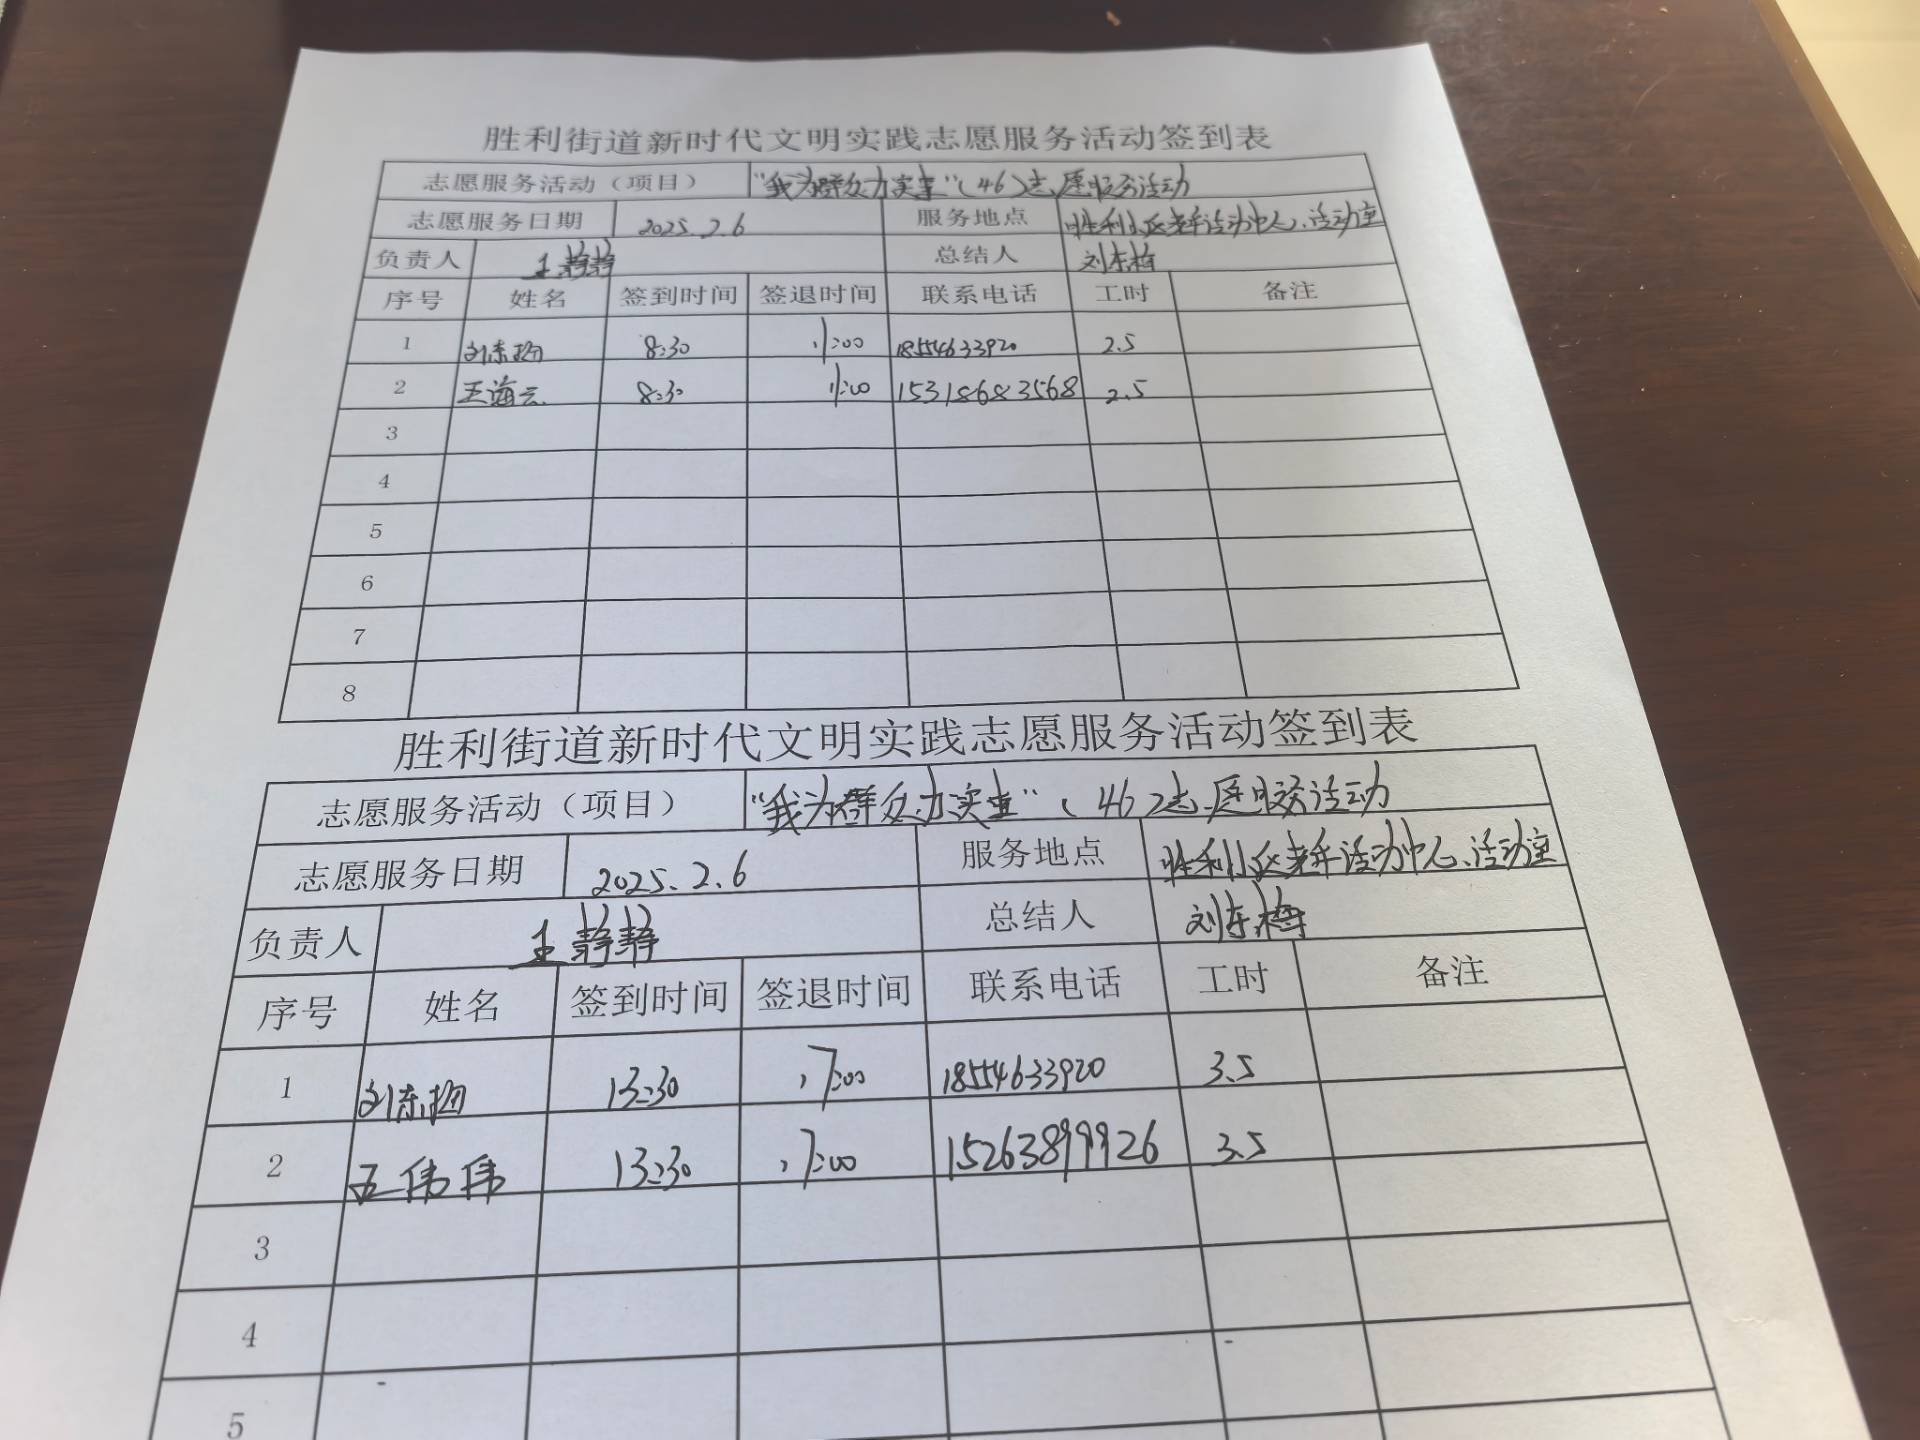 胜利街道新时代文明实践志愿服务活动签到表
志愿服务活动（项目） "我为群众办实事"（46）志愿服务活动
志愿服务日期 2025.2.6 服务地点 胜利小区老年活动中心、活动室
负责人 王静静 总结人 刘东梅
序号 姓名 签到时间 签退时间 联系电话 工时 备注
1 刘东 8:30 11:00 18554633920 2.5
2 王海云 8:30 11:00 15318683568 2.5
3
4
5
6
7
8
胜利街道新时代文明实践志愿服务活动签到表
志愿服务活动（项目） "我为群众办实事"（46）志愿服务活动
志愿服务日期 2025.2.6 服务地点 胜利小区老年活动中心、活动室
负责人 王静静 总结人 刘东梅
序号 姓名 签到时间 签退时间 联系电话 工时 备注
1 刘东 13:30 17:00 18554633920 3.5
2 王伟伟 13:30 17:00 15263899926 3.5
3
4
5